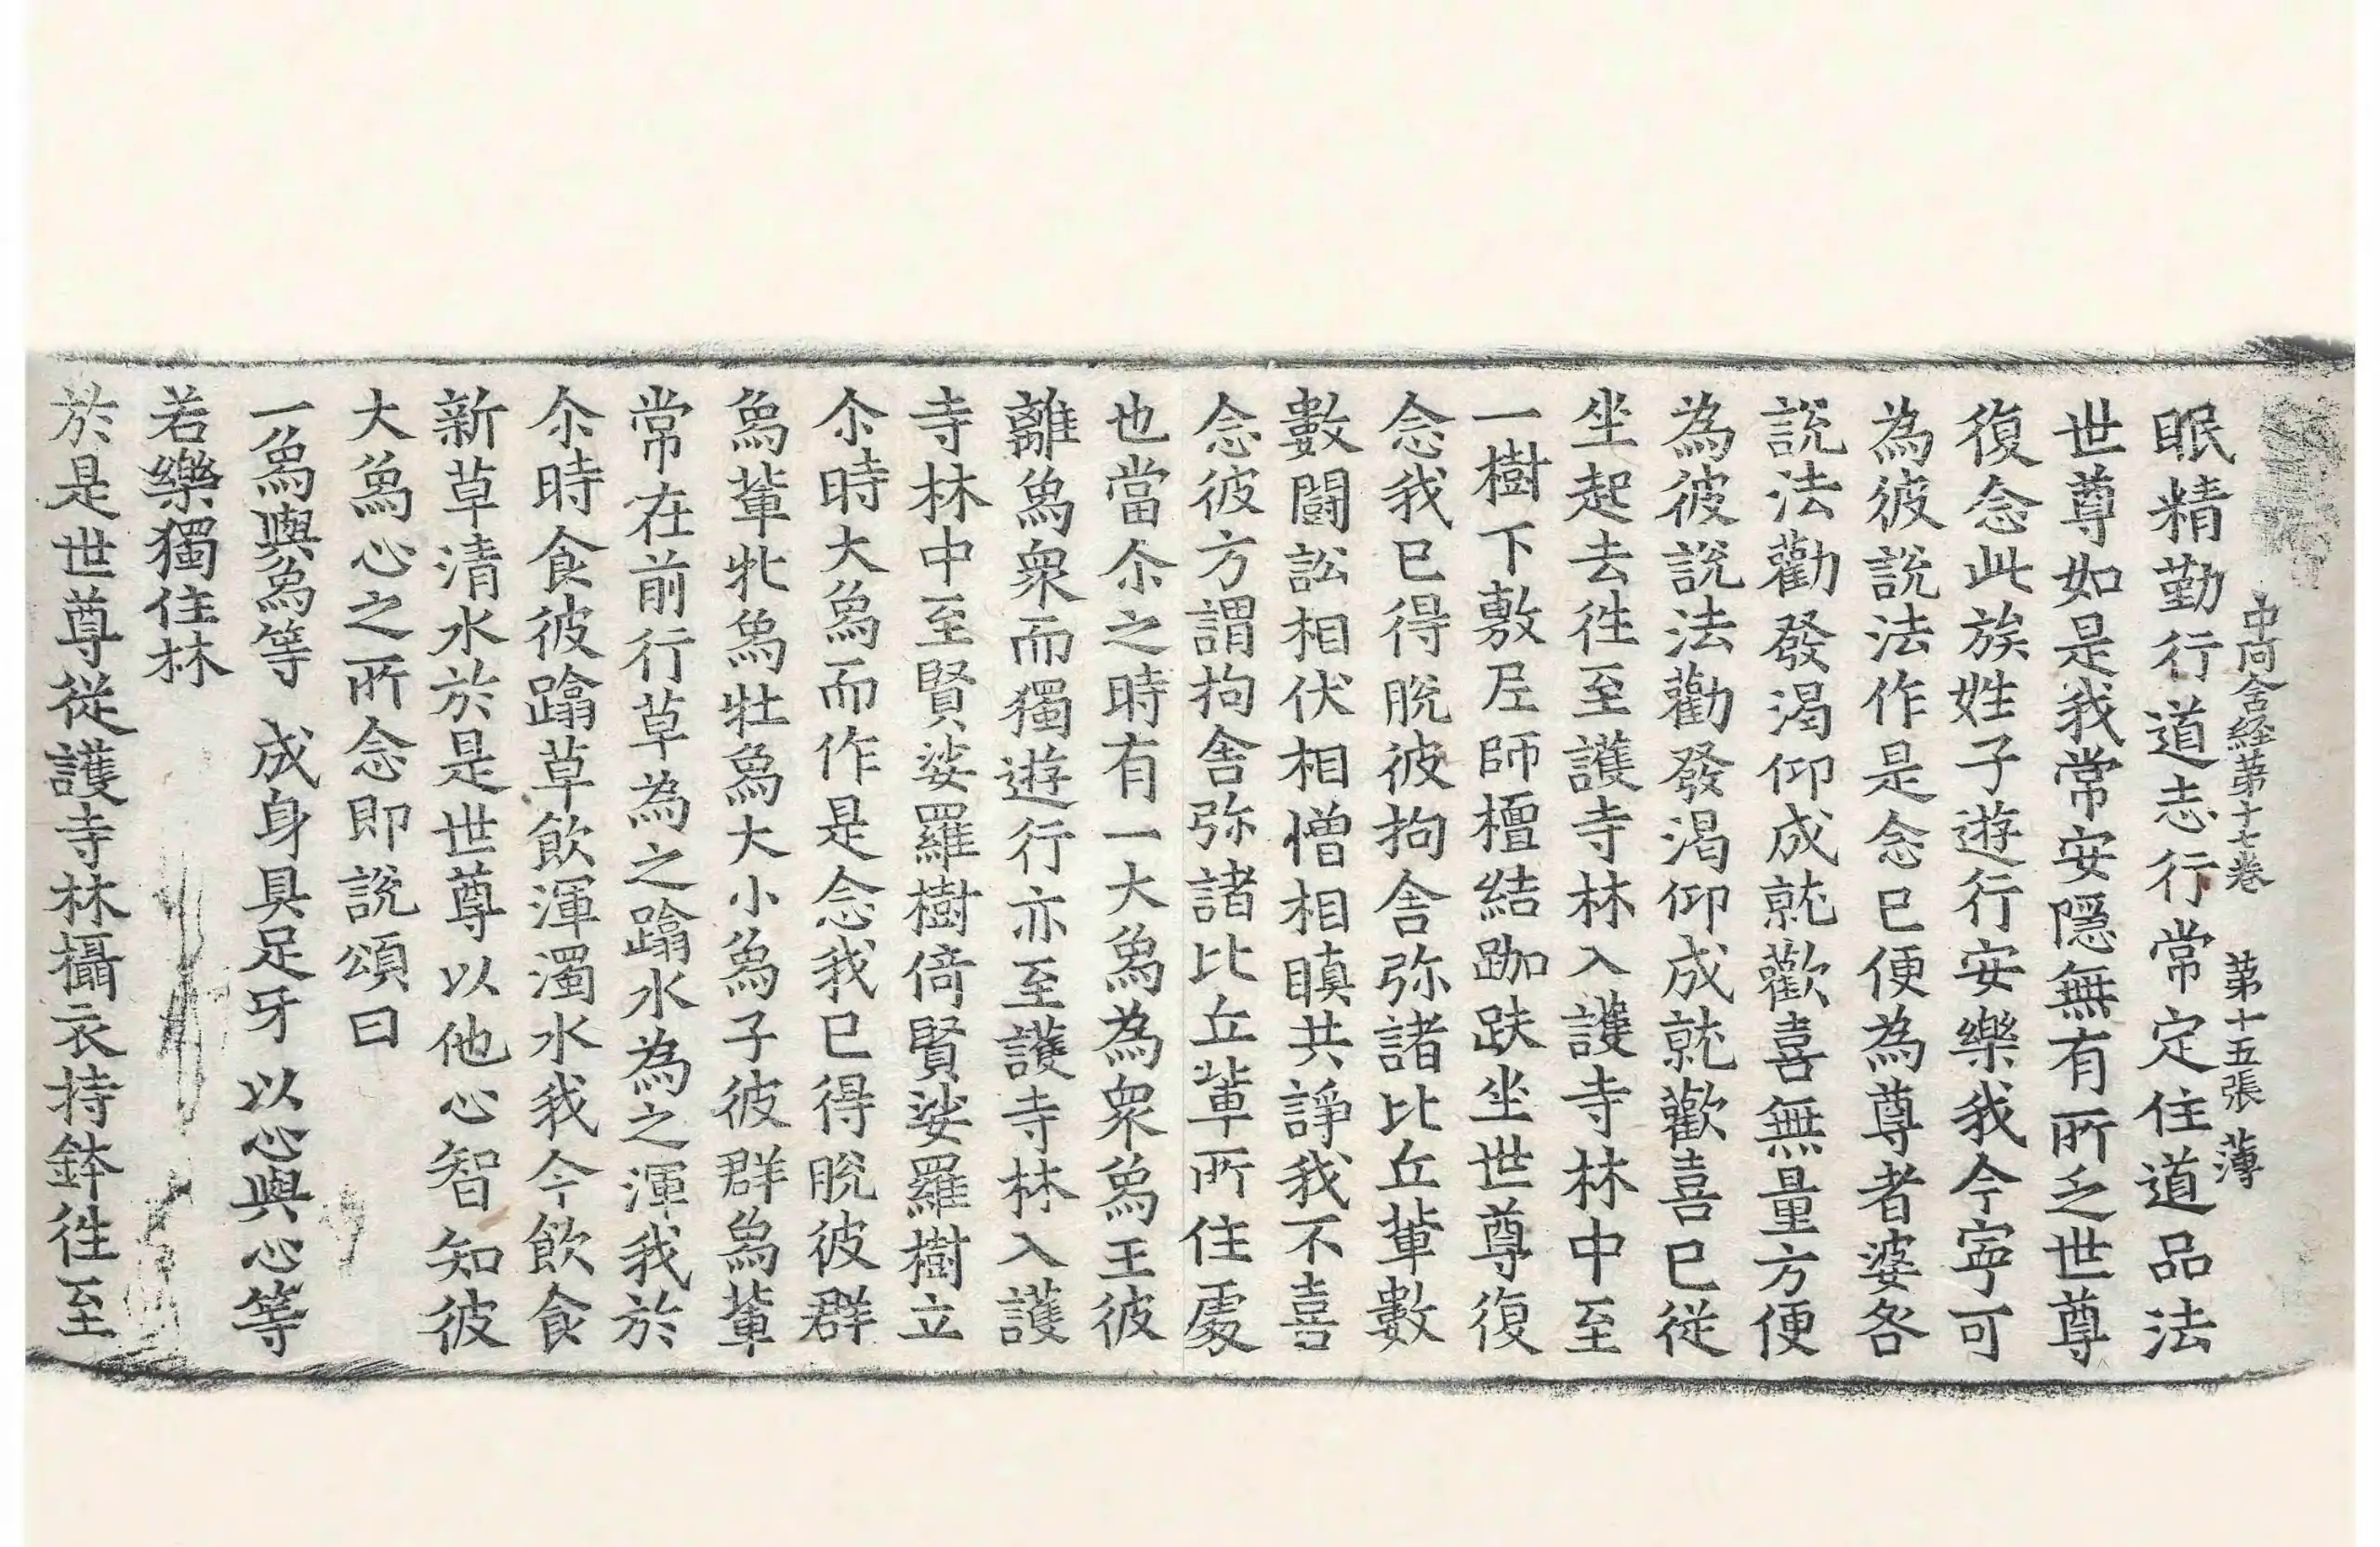 中阿含経第十七卷　第十五張　薄
眠精勤行道志行常定住道品法
世尊如是我常安隱無有所乏世尊
復念此族姓子遊行安樂我今寧可
為彼說法作是念已便為尊者婆咎
說法勸發渴仰成就歡喜無量方便
為彼說法勸發渴仰成就歡喜已從
坐起去往至護寺林入護寺林中至
一樹下敷尼師檀結跏趺坐世尊復
念我已得脫彼拘舍弥諸比丘軰數
數鬪訟相伏相憎相瞋共諍我不喜
念彼方謂拘舍弥諸比丘軰所住處
也當尒之時有一大象為衆象王彼
離象衆而獨遊行亦至護寺林入護
寺林中至賢娑羅樹倚賢娑羅樹立
尒時大象而作是念我已得脫彼群
象軰牝象牡象大小象子彼群象軰
常在前行草為之蹹水為之渾我於
尒時食彼蹹草飲渾濁水我今飲食
新草清水於是世尊以他心智知彼
大象心之所念即說頌曰
一象與象等　成身具足牙　以心與心等
若樂獨住林
於是世尊從護寺林攝衣持鉢往至